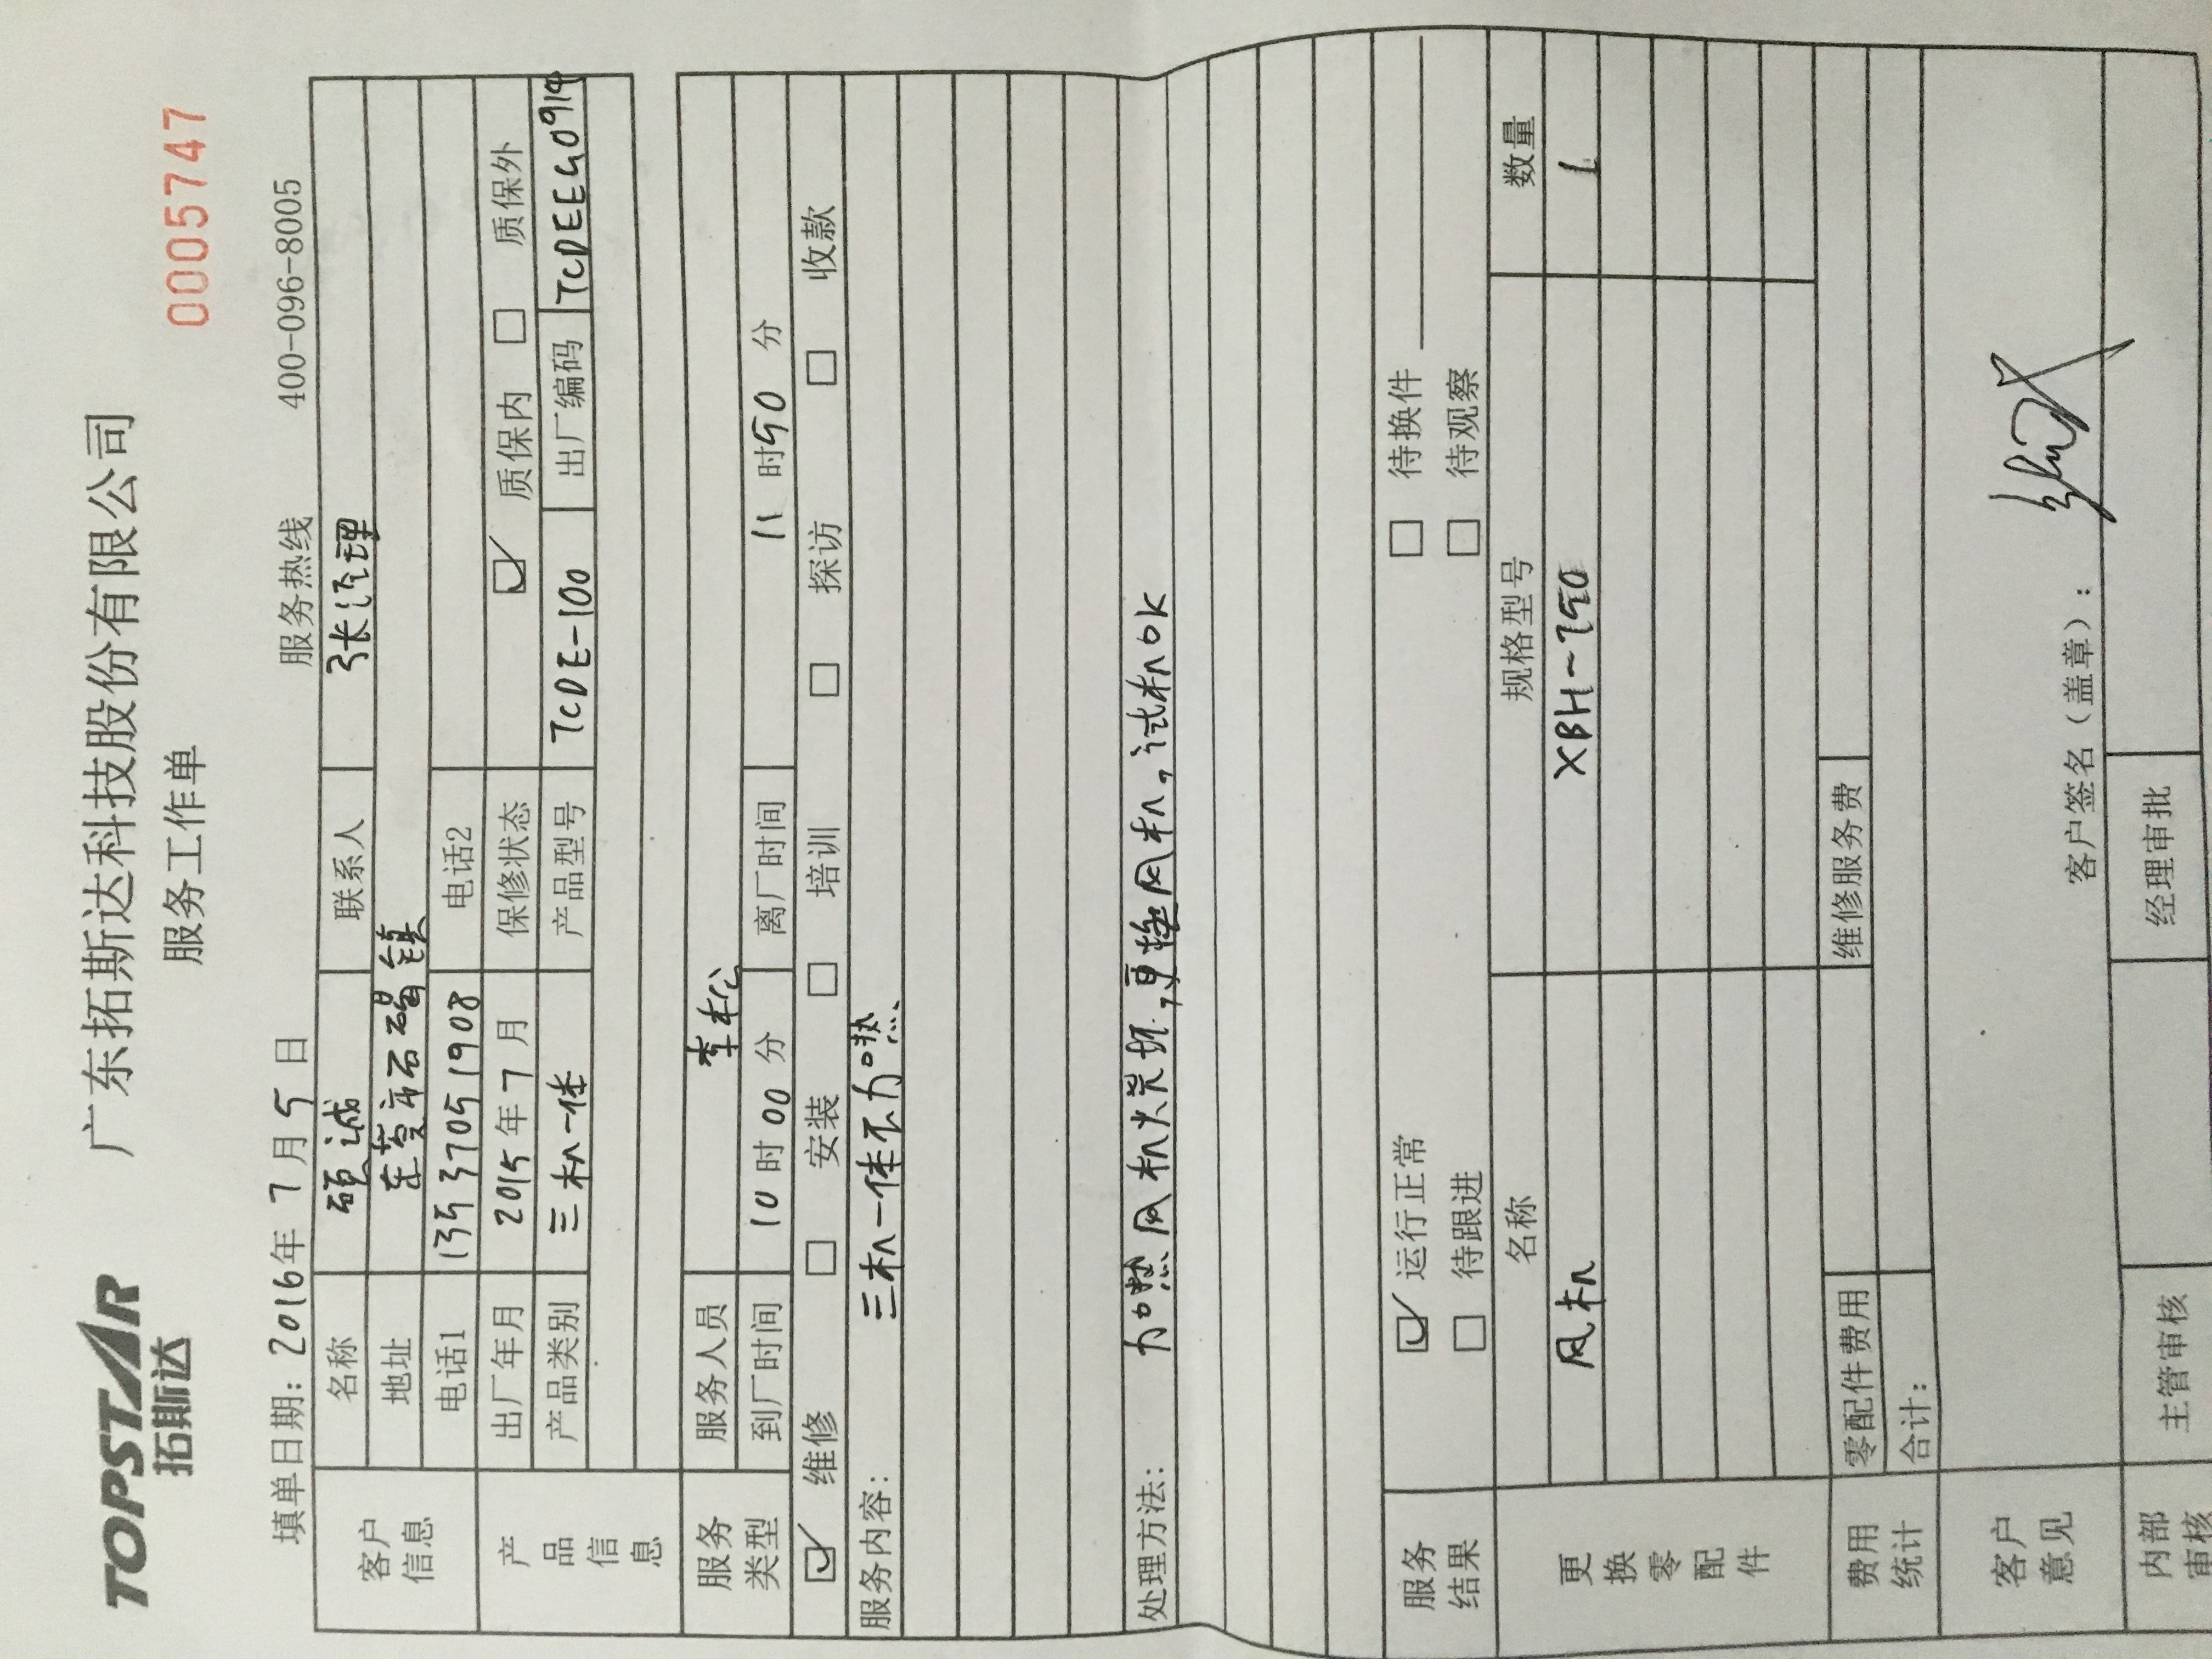 TOPSTAR
拓斯达
广东拓斯达科技股份有限公司
服务工作单
0005747
填单日期: 2016年 7月 5日 服务热线 400-096-8005
客户信息 名称 硕诚 联系人 张经理
地址 东莞市石碣镇
电话1 13537051908 电话2
产品信息 出厂年月 2015年7月 保修状态 ☑ 质保内 □ 质保外
产品类别 三机一体 产品型号 TCDE-100 出厂编码
服务类型 服务人员 李松
到厂时间 10时00分 离厂时间 11时50分
☑ 维修 □ 安装 □ 培训 □ 探访 □ 收款
服务内容: 三机一体不加热
处理方法: 加热风机烧坏,更换风机,试机OK
服务结果 ☑ 运行正常 □ 待换件
□ 待跟进 □ 待观察
更换零配件 名称 规格型号 数量
风机 XBH-750 1
费用统计 零配件费用 维修服务费
合计:
客户意见 客户签名(盖章):
内部审核 主管审核 经理审批